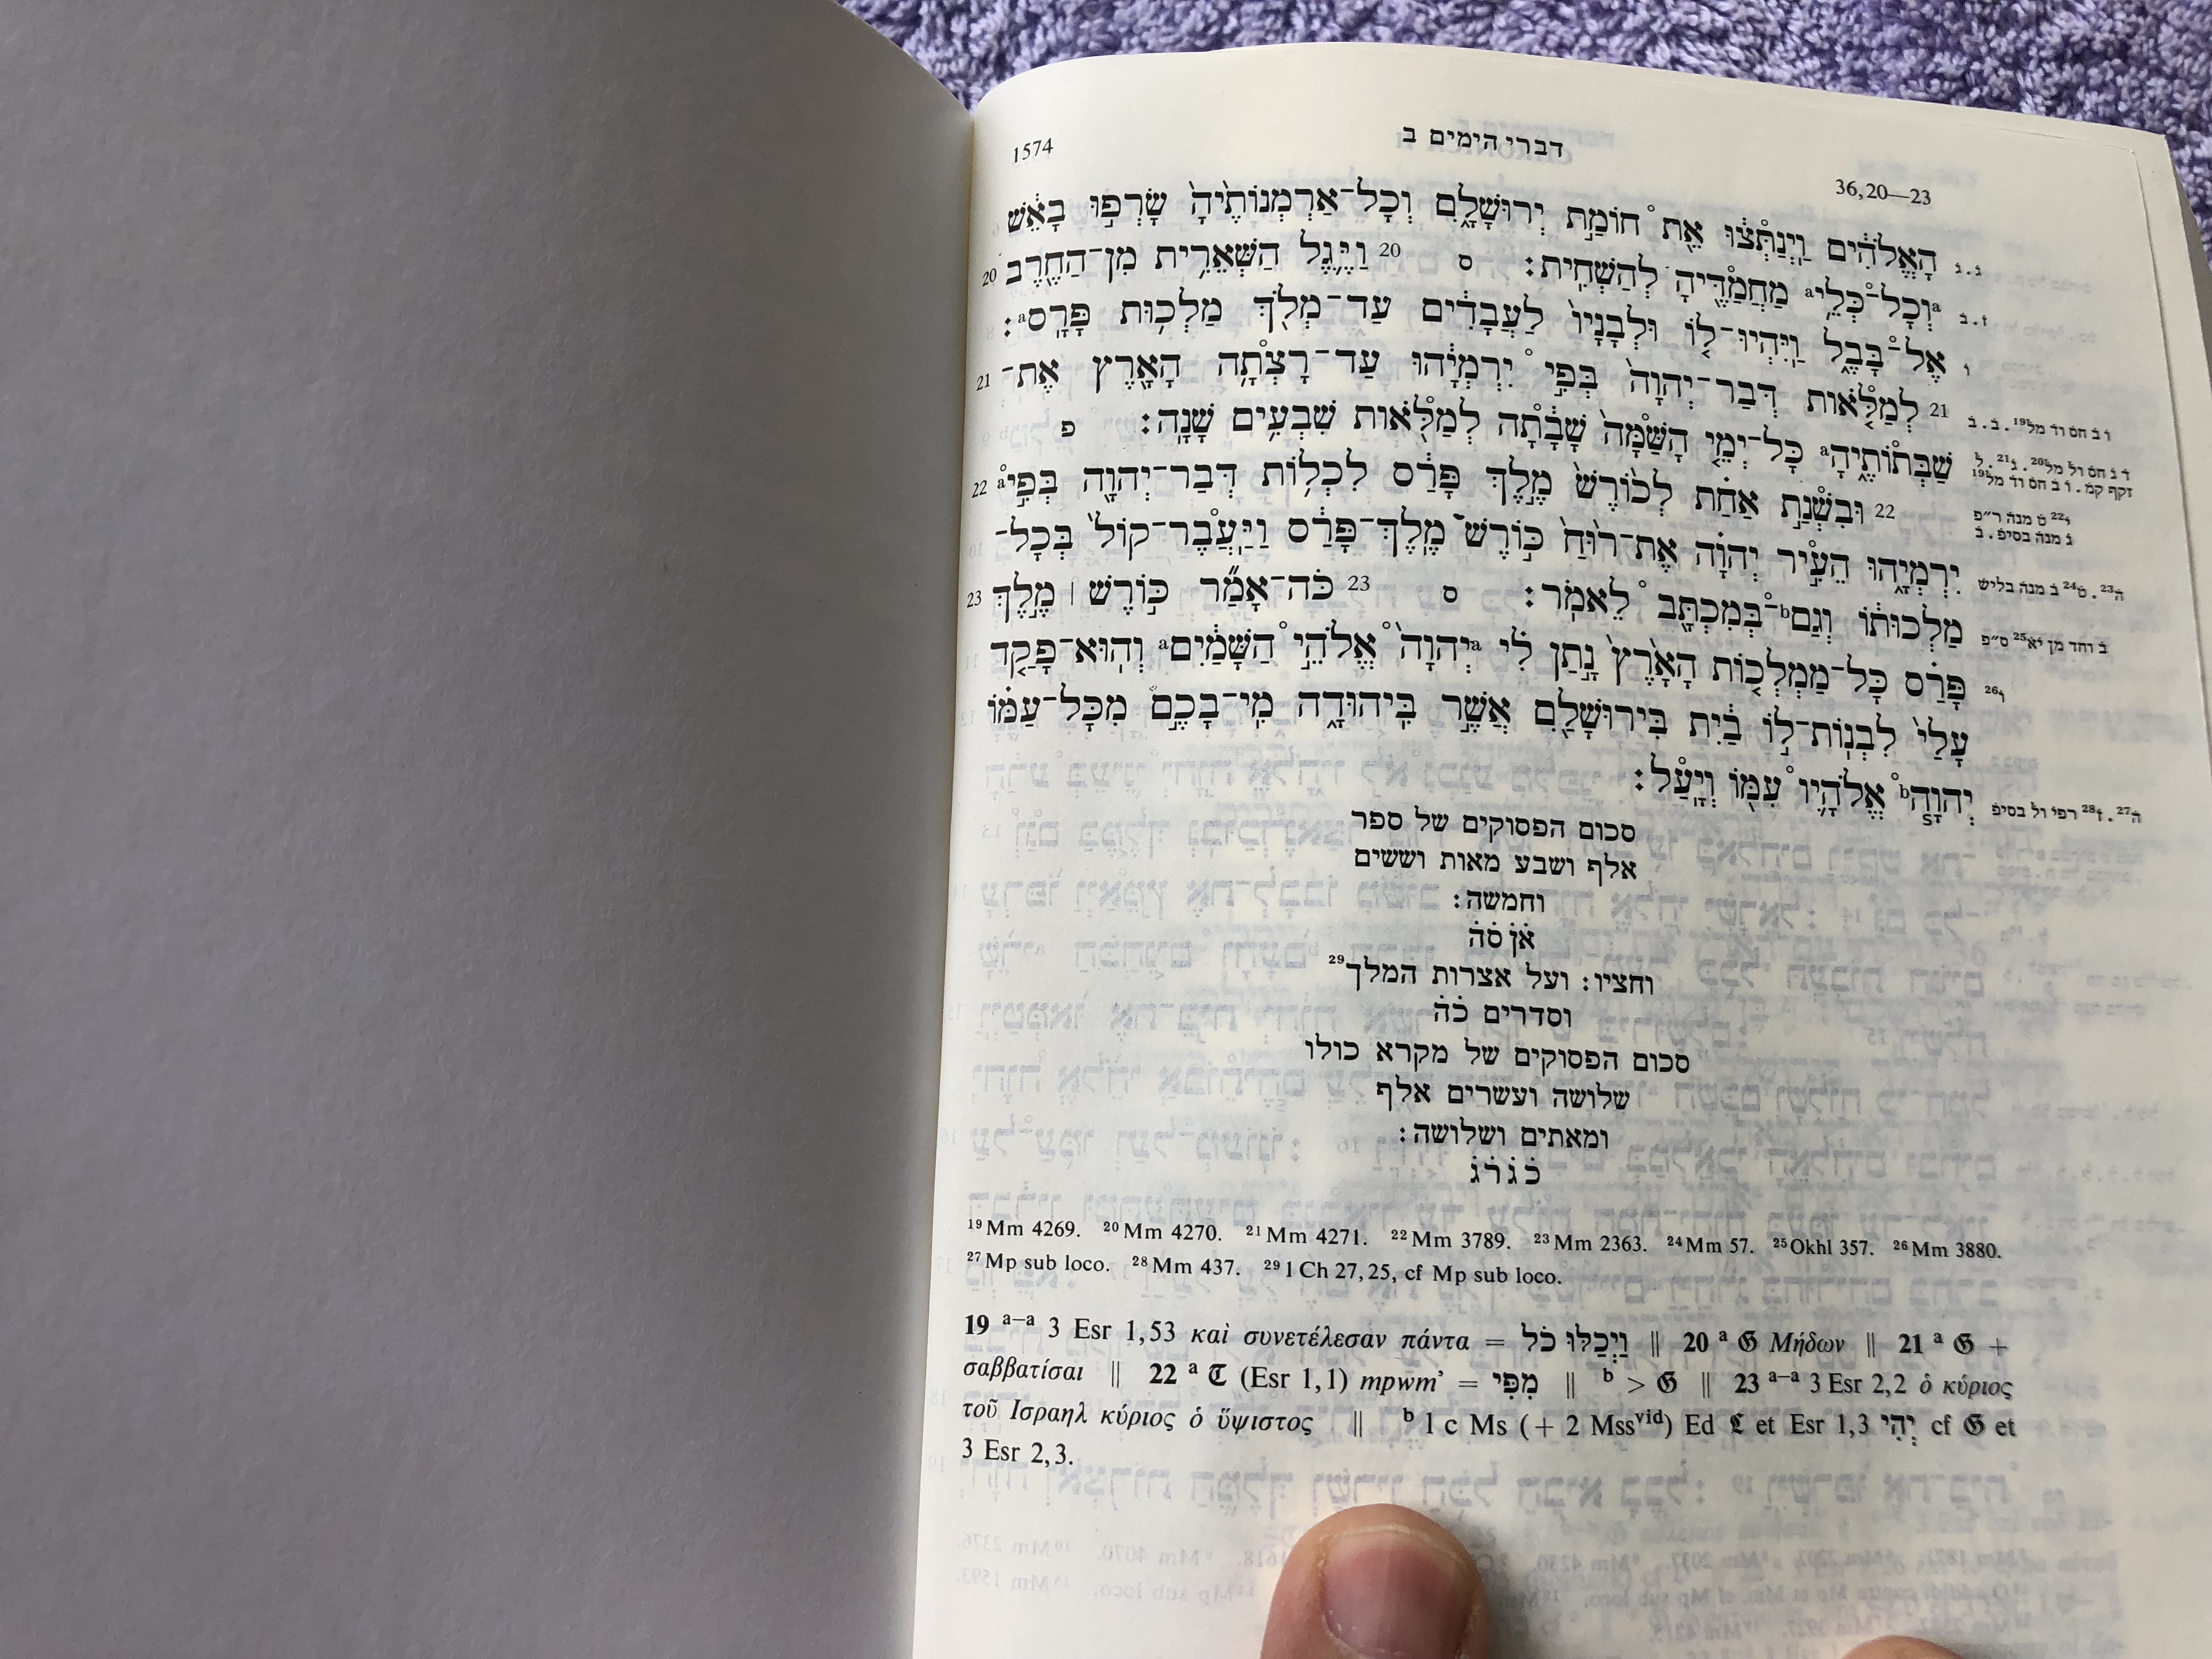 1574
דברי הימים ב
36,20—23
הָאֱלֹהִ֔ים וַֽיְנַתְּצ֔וּ אֵ֖ת חוֹמַ֣ת יְרוּשָׁלָ֑͏ִם וְכָל־אַרְמְנוֹתֶ֙יהָ֙ שָׂרְפ֣וּ בָאֵ֔שׁ
ᵃוְכָל־כְּלֵ֥יᵃ מַחֲמַדֶּ֖יהָ לְהַשְׁחִֽית׃ ס 20 וַיֶּ֛גֶל הַשְּׁאֵרִ֥ית מִן־הַחֶ֖רֶב 20
אֶל־בָּבֶ֑ל וַֽיִּהְיוּ־ל֤וֹ וּלְבָנָיו֙ לַעֲבָדִ֔ים עַד־מְלֹ֖ךְ מַלְכ֥וּת פָּרָֽסᵃ׃
21 לְמַלֹּ֤אות דְּבַר־יְהוָה֙ בְּפִ֣י יִרְמְיָ֔הוּ עַד־רָצְתָ֥ה הָאָ֖רֶץ אֶת־ 21
שַׁבְּתוֹתֶ֑יהָᵃ כָּל־יְמֵ֤י הָשַּׁמָּה֙ שָׁבָ֔תָה לְמַלֹּ֖אות שִׁבְעִ֥ים שָׁנָֽה׃ פ
22 וּבִשְׁנַ֣ת אַחַ֗ת לְכ֙וֹרֶשׁ֙ מֶ֣לֶךְ פָּרַ֔ס לִכְל֥וֹת דְּבַר־יְהוָ֖ה בְּפִ֣יᵃ 22
יִרְמְיָ֑הוּ הֵעִ֣יר יְהוָ֗ה אֶת־ר֙וּחַ֙ כּ֣וֹרֶשׁ מֶֽלֶךְ־פָּרַ֔ס וַיַּֽעֲבֶר־קוֹל֙ בְּכָל־
מַלְכוּת֔וֹ וְגַםᵇ־בְּמִכְתָּ֖ב לֵאמֹֽר׃ ס 23 כֹּה־אָמַ֞ר כּ֣וֹרֶשׁ ׀ מֶ֣לֶךְ 23
פָּרַ֗ס כָּל־מַמְלְכ֤וֹת הָאָ֙רֶץ֙ נָ֣תַן לִ֗י ᵃיְהוָה֙ אֱלֹהֵ֣י הַשָּׁמַ֔יִםᵃ וְהֽוּא־פָקַ֤ד
עָלַי֙ לִבְנֽוֹת־ל֣וֹ בַ֔יִת בִּירוּשָׁלַ֖͏ִם אֲשֶׁ֣ר בִּֽיהוּדָ֑ה מִֽי־בָכֶ֣ם מִכָּל־עַמּ֗וֹ
יְהוָ֧הᵇ אֱלֹהָ֛יו עִמּ֖וֹ וְיָֽעַל׃
סכום הפסוקים של ספר
אלף ושבע מאות וששים
וחמשה׃
אׄןׄ סׄהׄ
וחציו׃ ועל אצרות המלך²⁹
וסדרים כׄהׄ
סכום הפסוקים של מקרא כולו
שלושה ועשרים אלף
ומאתים ושלושה׃
כׄגׄרׄגׄ
¹⁹ Mm 4269. ²⁰ Mm 4270. ²¹ Mm 4271. ²² Mm 3789. ²³ Mm 2363. ²⁴ Mm 57. ²⁵ Okhl 357. ²⁶ Mm 3880.
²⁷ Mp sub loco. ²⁸ Mm 437. ²⁹ 1 Ch 27,25, cf Mp sub loco.
19 ᵃ⁻ᵃ 3 Esr 1,53 καὶ συνετέλεσαν πάντα = וַיְכַלּוּ כֹל ‖ 20 ᵃ 𝔊 Μήδων ‖ 21 ᵃ 𝔊 +
σαββατίσαι ‖ 22 ᵃ 𝕿 (Esr 1,1) mpwmʾ = מִפִּי ‖ ᵇ > 𝔊 ‖ 23 ᵃ⁻ᵃ 3 Esr 2,2 ὁ κύριος
τοῦ Ισραηλ κύριος ὁ ὕψιστος ‖ ᵇ l c Ms (+ 2 Mssᵛⁱᵈ) Ed 𝕷 et Esr 1,3 יְהִי cf 𝔊 et
3 Esr 2,3.